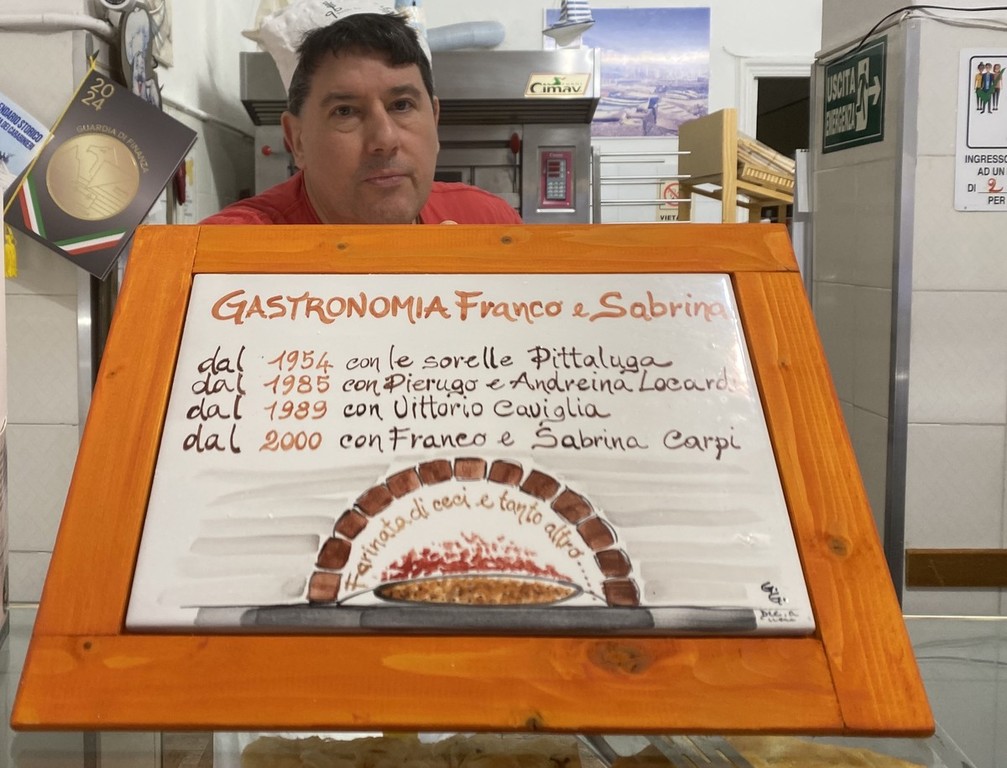 2024
GUARDIA DI FINANZA
Cimav
USCITA
EMERGENZA
INGRESSO
AD UN
DI 2
PER
VIETA
GASTRONOMIA Franco e Sabrina
dal 1954 con le sorelle Pittaluga
dal 1985 con Pierugo e Andreina Locardi
dal 1989 con Vittorio Caviglia
dal 2000 con Franco e Sabrina Carpi
Farinata di ceci e tanto altro......